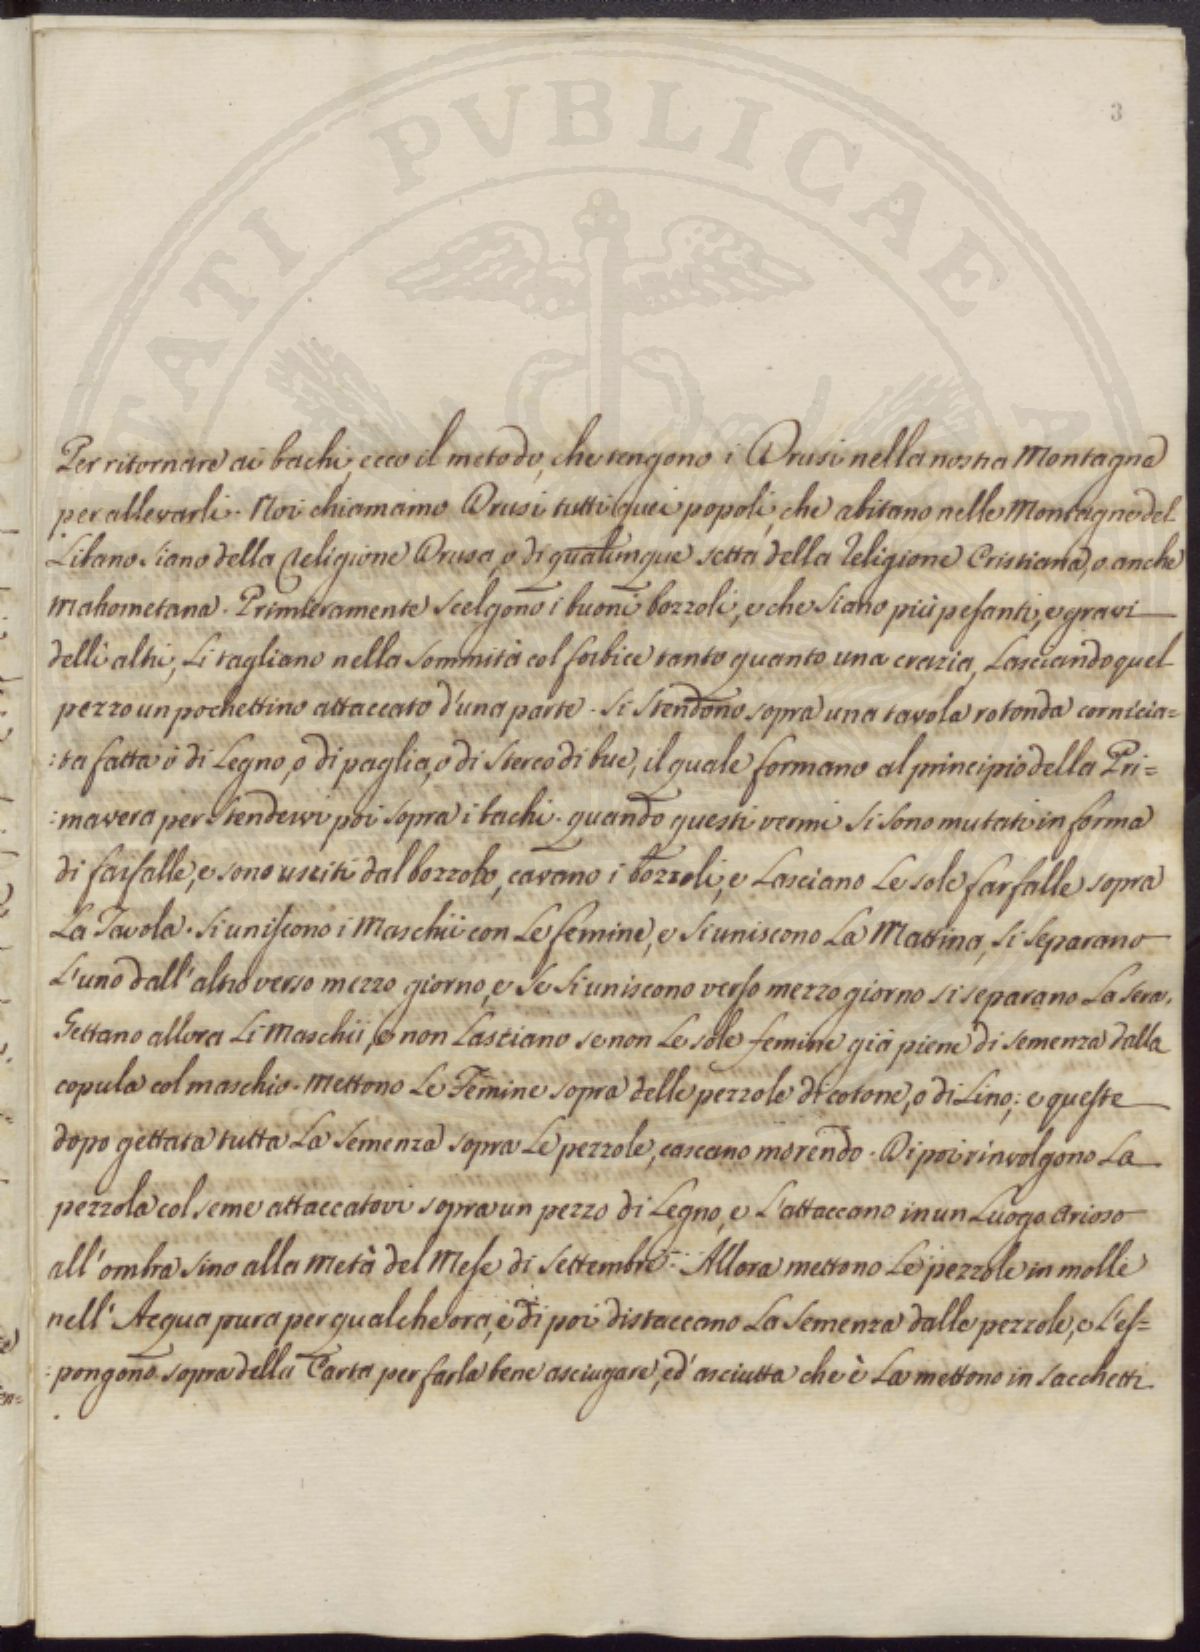 PVBLICAE
3
Per ritornare ai bachi, ecco il metodo, che tengono i Drusi nella nostra Montagna
per allevarli. Noi chiamamo Drusi tutti quei popoli, che abitano nelle Montagne del
Libano siano della Religione Drusa, o di qualunque setta della Religione Cristiana, o anche
Mahometana. Primieramente scelgono i buoni bozzoli, e che siano più pesanti, e gravi
delli altri, Li tagliano nella sommità col forbice tanto quanto una crazia, Lasciando quel
pezzo un pochettino attaccato d'una parte. Si stendono sopra una tavola rotonda cornicia=
:ta fatta ò di Legno, o di paglia, o di sterco di bue, il quale formano al principio della Pri=
:mavera per stendervi poi sopra i bachi. quando questi vermi si sono mutati in forma
di farfalle, e sono usciti dal bozzolo, cavano i bozzoli, e Lasciano Le sole farfalle sopra
La Tavola. Si uniscono i Maschii con Le femine, e si uniscono La Mattina, si separano
L'uno dall'altro verso mezzo giorno, e se si uniscono verso mezzo giorno si separano La sera.
Gettano allora Li Maschii, e non Lasciano se non Le sole femine già piene di semenza dalla
copula col maschio. Mettono Le Femine sopra delle pezzole di cotone, o di Lino; e queste
dopo gettata tutta La semenza sopra Le pezzole, cascano morendo. Di poi rinvolgono La
pezzola col seme attaccatovi sopra un pezzo di Legno, e L'attaccano in un Luogo Arioso
all'ombra sino alla metà del Mese di Settembre. Allora mettono Le pezzole in molle
nell'Acqua pura per qualche ora, e di poi distaccano La semenza dalle pezzole, e L'es=
:pongono sopra della Carta per farla bene asciugare, ed asciutta che è La mettono in sacchetti